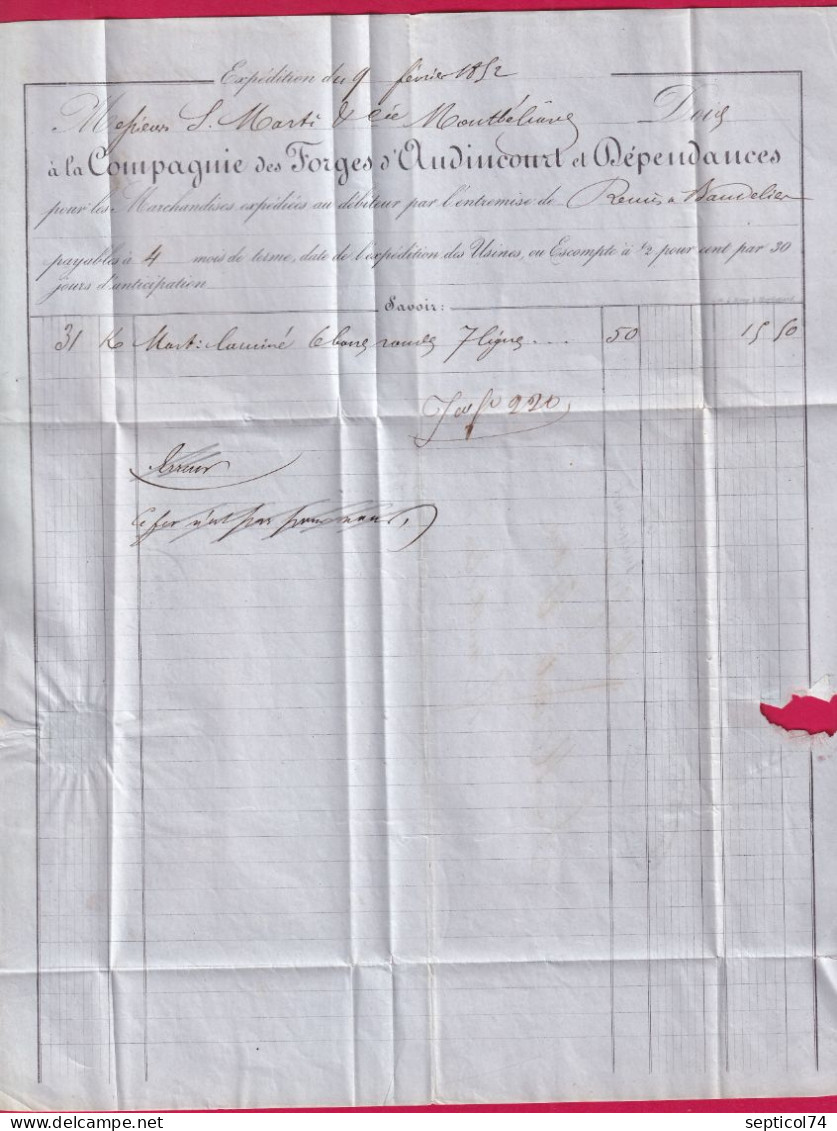 Expédition du 9 février 1852
Messieurs S. Marti & Cie Montbéliard Doivt
à la Compagnie des Forges d'Audincourt et Dépendances
pour les Marchandises expédiées au débiteur par l'entremise de Remis à Baudelier
payables à 4 mois de terme, date de l'expédition des Usines, ou Escompte à 1/2 pour cent par 30
jours d'anticipation
Savoir:
31 K Mart: laminé 6 barres rondes 7 lignes ... 50 15 50
Jal fo 220
Erreur
le fer n'est pas
septicol74
delcampe.net